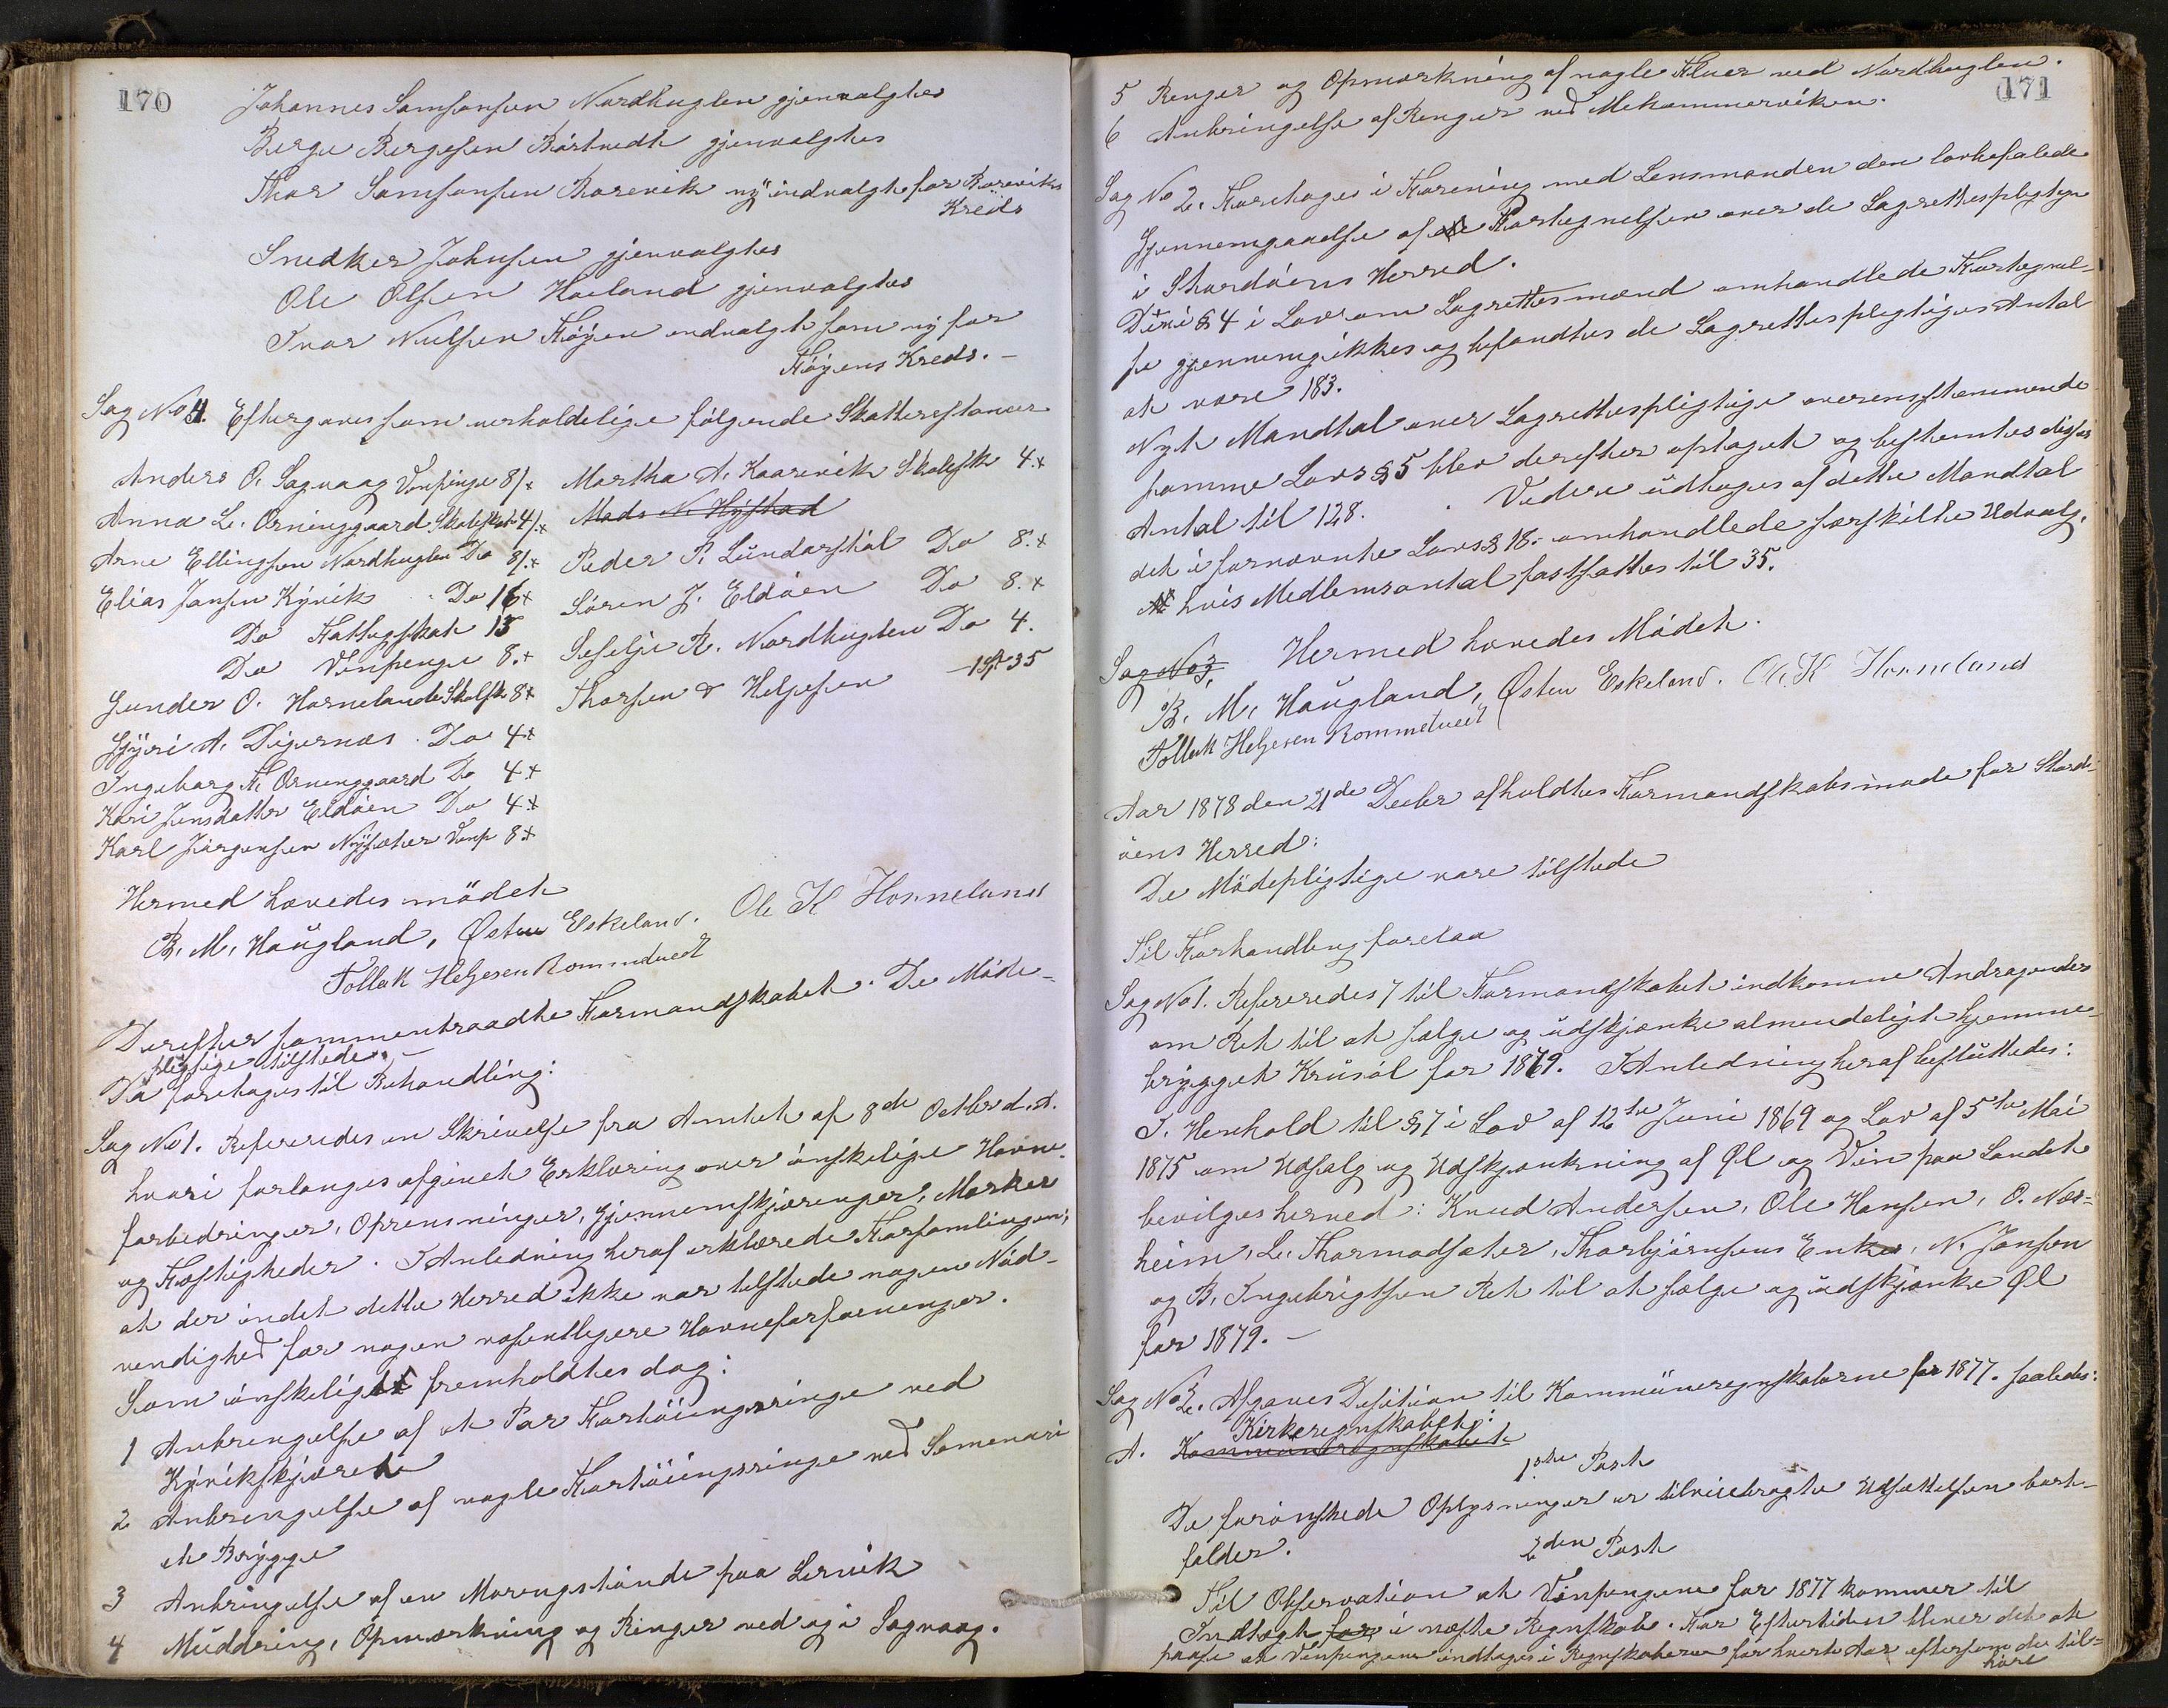 170
Johannes Samsonsen Nordhuglen gjenvalgtes
Berge Bergesen Børtvedt gjenvalgtes
Thor Samsonsen Børevik ny indvalgt for Børeviks
Kreds
Snedker Johnsen gjenvalgtes
Ole Olsen Hovland gjenvalgtes
Ivar Nielsen Føyen indvalgt som ny for
Føyens Kreds. –
Sag No 4. Eftergaves som uerholdelige følgende Skatterestancer
Anders O. Sagvaag Vinpenge 8/ x
Anna L. Orninggaard Skoleskat 4/ x
Arne Ellingsen Nordhuglen Do 8/ x
Elias Jansen Kyvik Do 16 x
Do Fattigskat 15
Do Vinpenge 8. x
Gunder O. Hornelande Skolsk 8 x
Gyri A. Digernæs Do 4 x
Ingeborg H. Orninggaard Do 4. x
Kari Jensdatter Eldøen Do 4. x
Karl Jørgensen Nysæter Vinp 8. x
Martha A. Kaarevik Skolesk 4. x
Mads N. Hystad
Peder P. Lundarstøl Do 8. x
Søren J. Eldøen Do 8. x
Seselje R. Nordhuglen Do 4.
Thorsen & Helgesen 1 Sp 35
Hermed hævedes mödet
B. M. Haugland, Østen Eskeland. Ole K Horneland
Tollak Helgesen Rommetvedt
Derefter sammentraadte Formandskabet. De Møde-
pligtige tilstede. –
Da foretoges til Behandling:
Sag No 1. Refereredes en Skrivelse fra Amtet af 8de Octbr d. A.
hvori forlanges afgivet Erklæring over ønskelige Havne-
forbedringer, Oprensninger, Gjennemskjæringer, Mærker
og Fæstigheder. I Anledning heraf erklærede Forsamlingen,
at der indet dette Herred ikke var tilstede nogen Nød-
vendighed for nogen væsentligere Havneforfæninger.
Som ønskeligt fremholdtes dog:
1 Anbringelse af et Par Fortøiningsringe ved
Kyvikskjæret
2 Anbringelse af nogle Fortøiningsringe ved Semenari
et Brygge
3 Anbringelse af en Moringstønde paa Lervik
4 Muddring, Opmærkning og Ringer ved og i Sagvaag.
171
5 Renger og Opmærkning af nogle Fluer ved Nordhuglen.
6 Anbringelse af Renger ved Mehammerviken.
Sag No 2. Foretoges i Forening med Lensmanden den lovbefalede
Gjennemgaaelse af Fortegnelsen over de Lagrettespligtige
i Stordøens Herred.
Den i § 4 i Lov om Lagrettesmænd omhandlede Fortegnel-
se gjennemgikkes og befandtes de Lagrettespligtiges Antal
at være 183.
Nyt Mandtal over Lagrettespligtige overensstemmende
samme Lovs § 5 blev derefter optaget og bestemtes disses
Antal til 128. Videre udtoges af dette Mandtal
det i fornævnte Lovs § 18 omhandlede særskilte Udvalg,
hvis Medlemsantal fastsattes til 35.
Sag No 3. Hermed hævedes Mödet.
B. M. Haugland, Østen Eskeland. Ole K Horneland
Tollak Helgesen Rommetvedt
Aar 1878 den 21de Decbr afholdtes Formandskabsmøde for Stord-
øens Herred:
De Mödepligtige vare tilstede
Til Forhandling forelaa
Sag No 1. Refereredes 7 til Formandskabet indkomne Andragender
om Ret til at sælge og udskjænke almindeligt hjemme-
brygget Krusøl for 1879. I Anledning heraf besluttedes:
I. Henhold til § 7 i Lov af 12te Juni 1869 og Lov af 5te Mai
1875 om Udsalg og Udskjænkning af Øl og Vin paa Landet
bevilges herved: Knud Andersen, Ole Hansen, O. Næs-
heim, L. Thormodsæter, Thorbjørnsens Enke, N. Jansen
og B. Ingebrigtsen Ret til at sælge og udskjænke Øl
for 1879. –
Sag No 2. Afgaves Desition til Kommuneregnskaberne for 1877. saaledes:
Kirkeregnskabet:
A. Kommuneregnskabet
1ste Post
De forønskede Oplysninger er tilveiebragte Udsættelsen bort-
falder.
2den Post
Til Observation at Vinpengene for 1877 kommer til
Indtægt for i næste Regnskab. For Eftertiden bliver det at
paase at Vinpengene indtages i Regnskaberne for hvert Aar eftersom de til-
höre